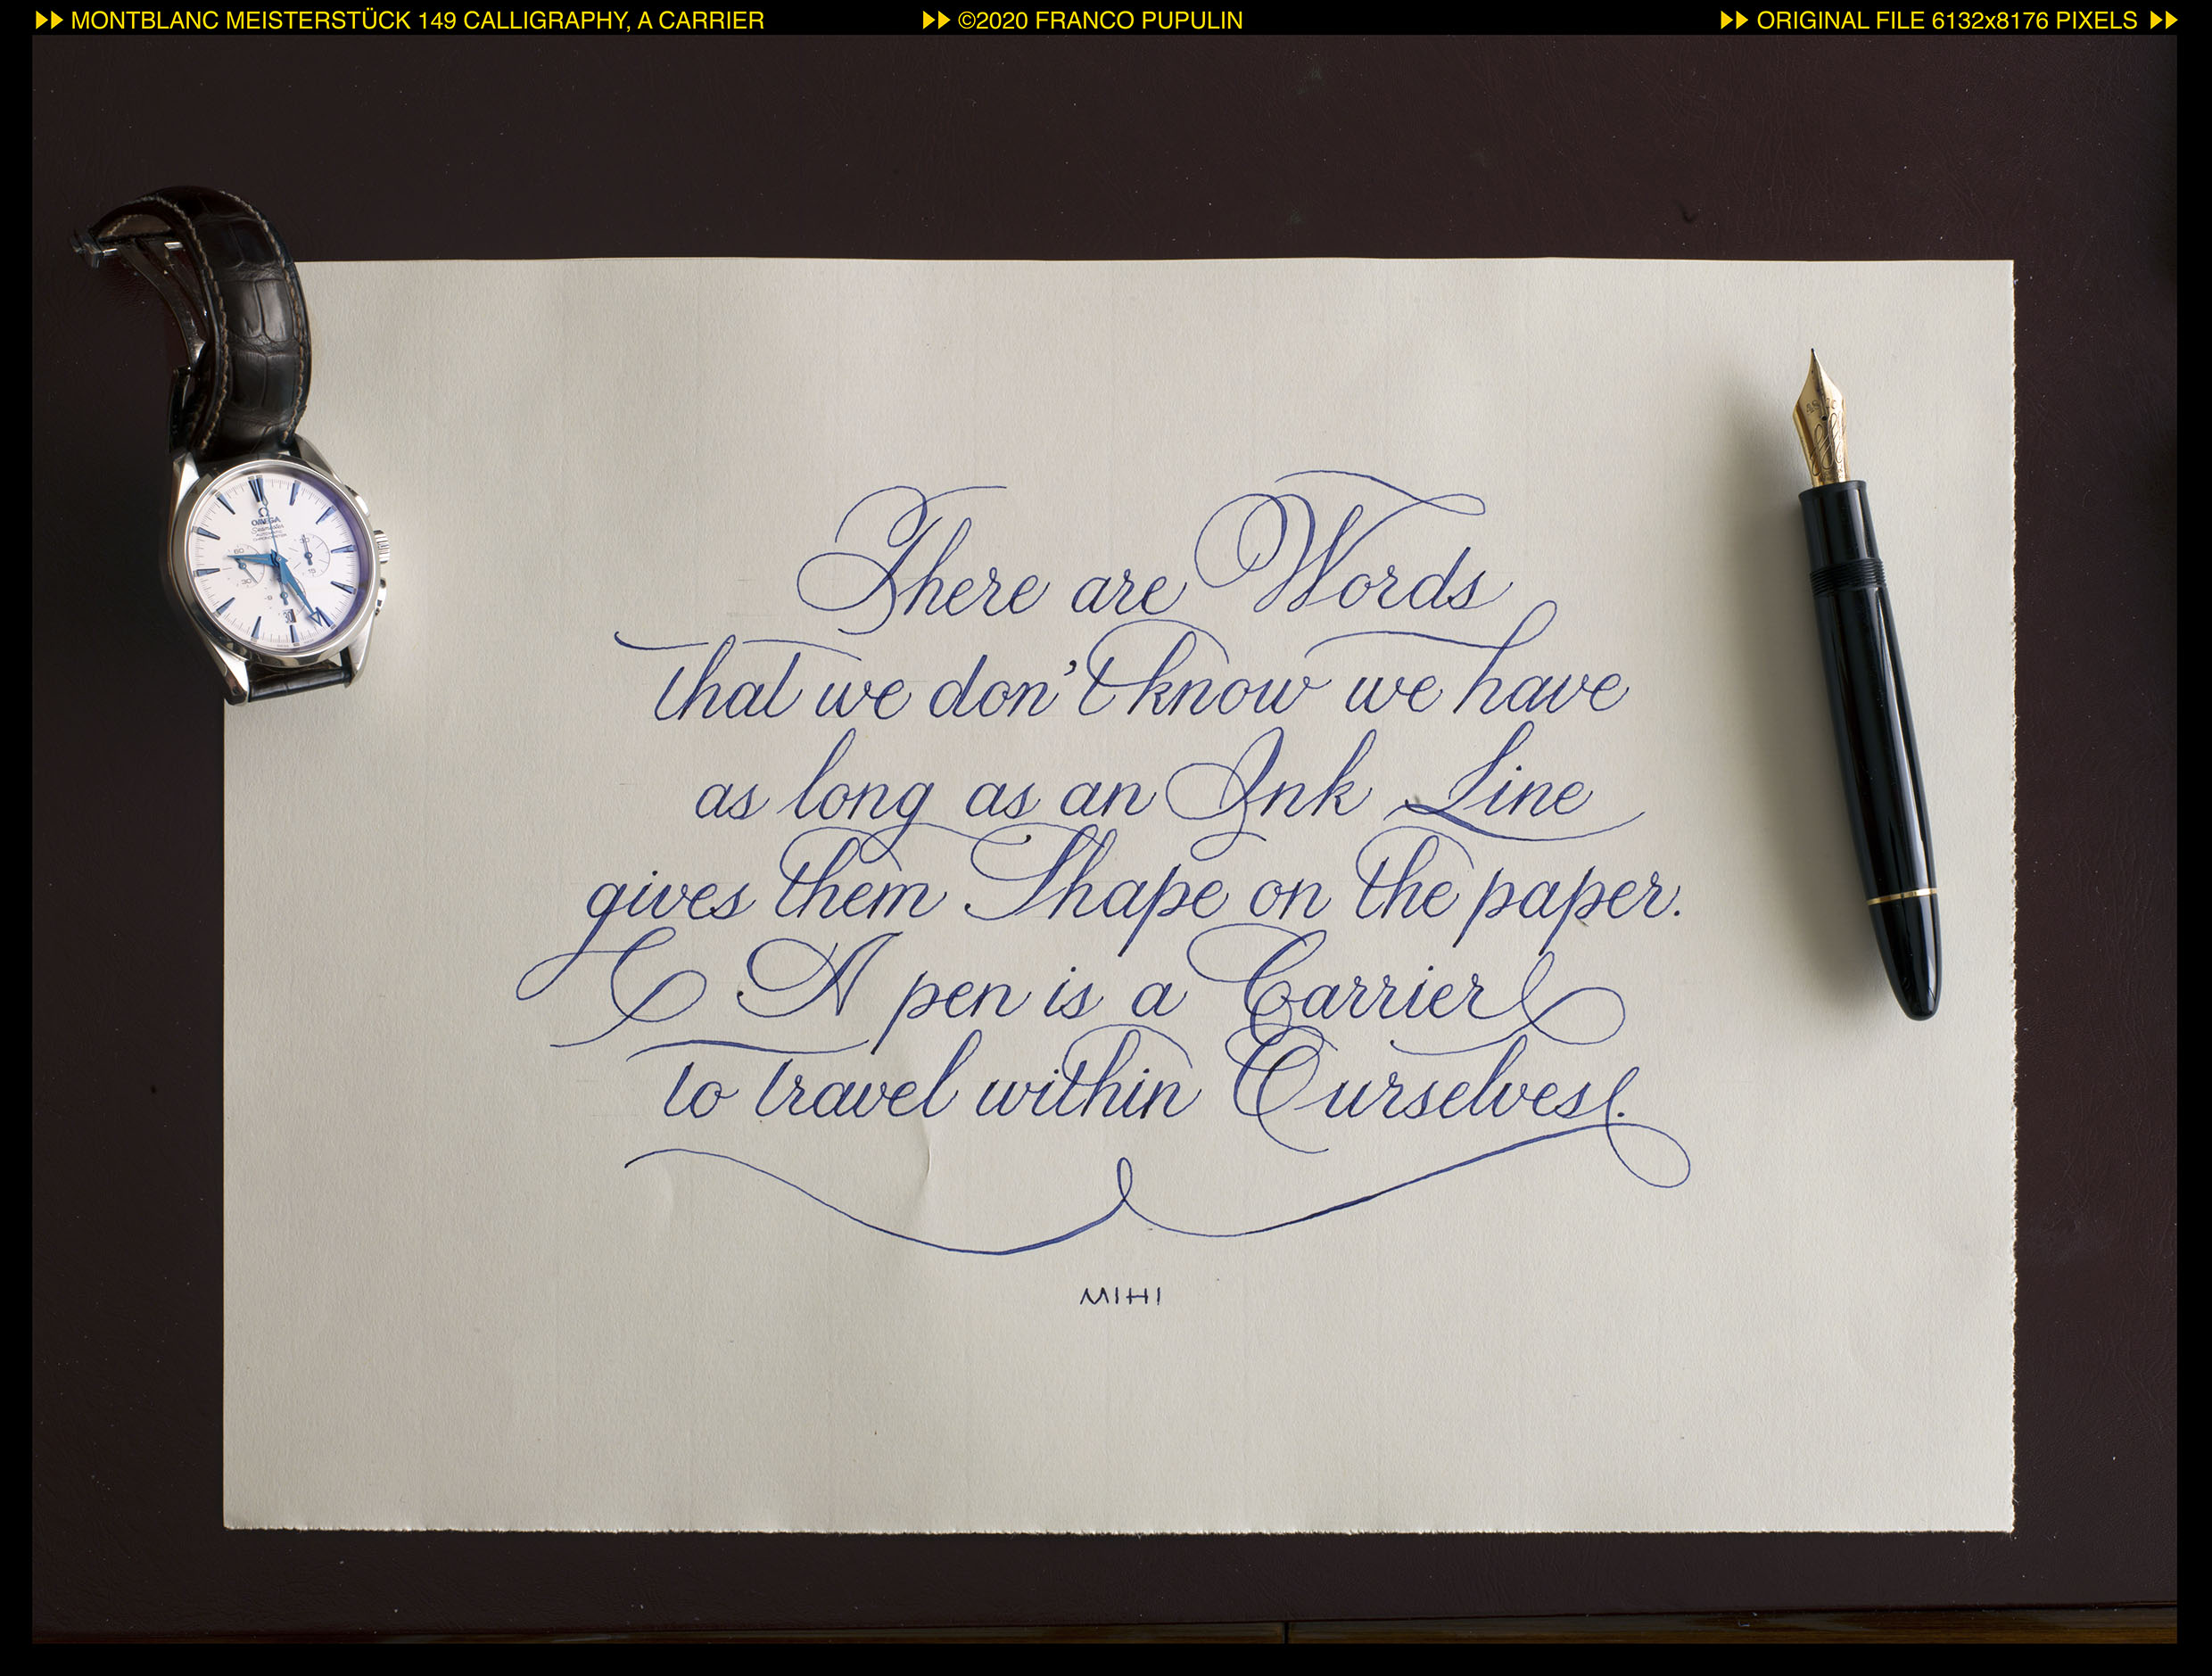 MONTBLANC MEISTERSTÜCK 149 CALLIGRAPHY, A CARRIER
©2020 FRANCO PUPULIN
ORIGINAL FILE 6132x8176 PIXELS
OMEGA
Seamaster
AUTOMATIC
CHRONOMETER
60
30
There are Words
that we don't know we have
as long as an Ink Line
gives them Shape on the paper.
A pen is a Carrier
to travel within Ourselves.
MIHI